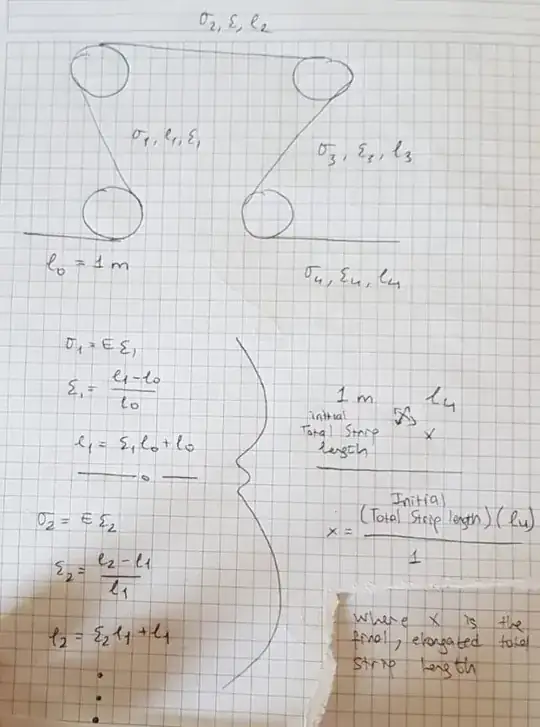 σ₂, ξ, l₂
σ₁, l₁, ξ₁
σ₃, ξ₃, l₃
l₀ = 1 m
σ₄, ξ₄, l₄
σ₁ = E ξ₁
ξ₁ = (l₁-l₀)/l₀
l₁ = ξ₁l₀ + l₀
σ₂ = E ξ₂
ξ₂ = (l₂-l₁)/l₁
l₂ = ξ₂l₁ + l₁
1 m l₄
initial
Total Strip x
length
Initial
x = (Total Strip length)(l₄)
1
where x is the
final, elongated total
strip length